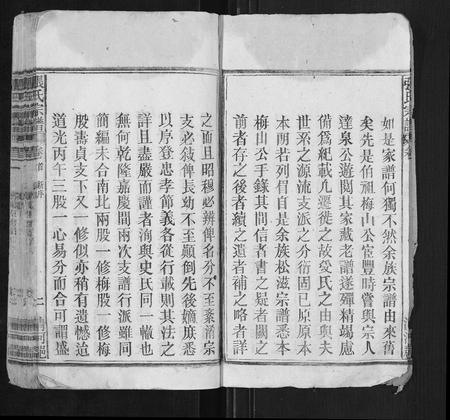 如是家譜何獨不然余族宗譜由來舊
矣先是伯祖梅山公宦豐時嘗與宗人
達泉公遊閱其家藏老譜遂殫精竭慮
備爲紀載凡遷徙之故受氏之由與夫
世系之源流支派之分衍固已原原本
本朗若列眉自是余族松滋宗譜悉本
梅山公手錄其間信者書之疑者闕之
前者存之後者續之遺者補之略者詳
之而且昭穆必辨俾名分不至紊淆宗
支必敘俾長幼不至顛倒先後嫡庶悉
以序登忠孝節義各從行載則其法之
詳且盡嚴而謹者洵與史氏同一轍也
無何乾隆嘉慶間兩次支譜行派雖同
簡編未合南北兩股一修梅股一修梅
股壽貞支下又一修似亦稍有遺憾迨
道光丙午三股一心易分而合可謂盛
張氏宗譜
卷首
二